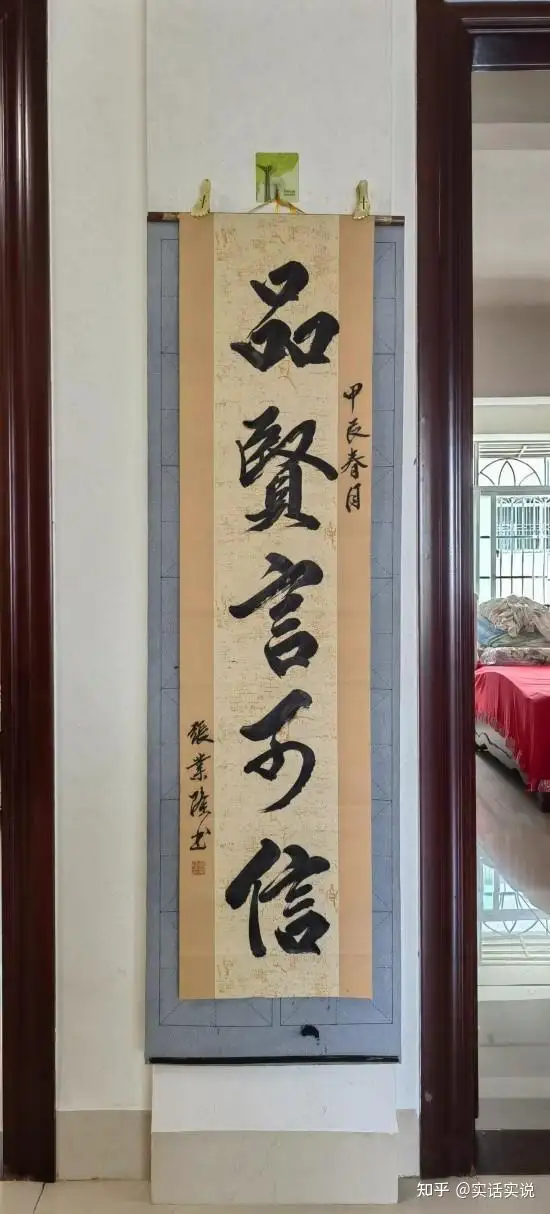 甲辰春月
品賢言可信
張業隆书
知乎 @实话实说